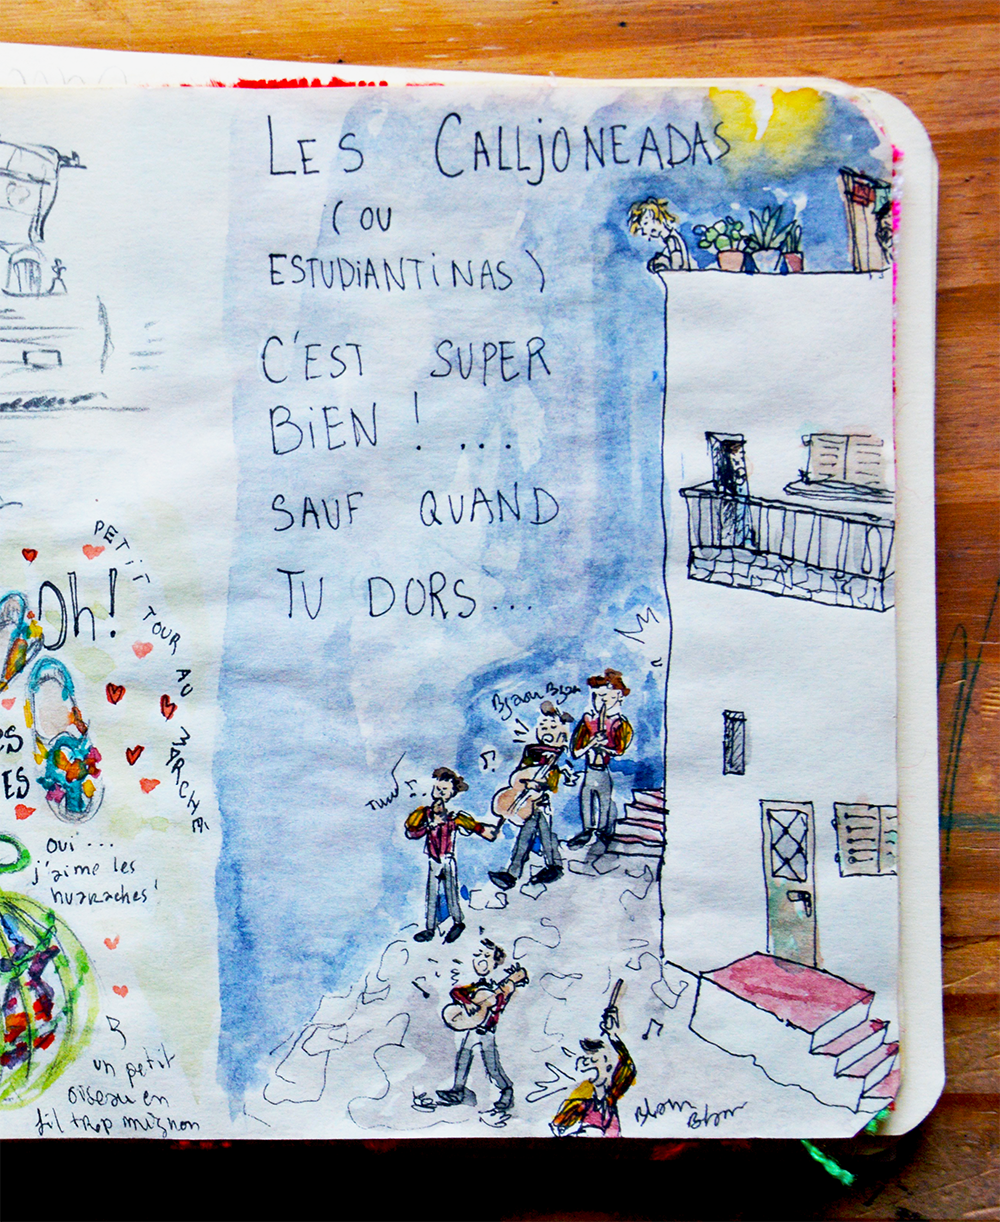 LES CALLJONEADAS
(OU
ESTUDIANTINAS)
C'EST SUPER
BIEN ! ...
SAUF QUAND
TU DORS...
Bjaou Bjaou
Tuuu
Blam
Blam
PETIT TOUR AU MARCHÉ
Oh!
ES
ES
oui ...
j'aime les
huaraches !
un petit
oiseau en
fil trop mignon